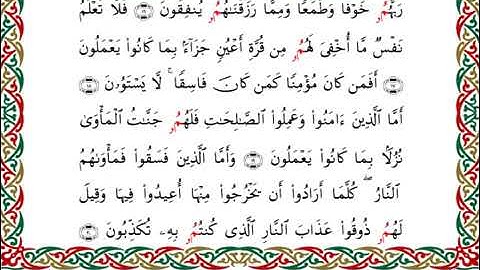 رَبَّهُمُۥ خَوْفًا وَطَمَعًا وَمِمَّا رَزَقْنَٰهُمُۥ يُنفِقُونَ فَلَا تَعْلَمُ
نَفْسٌ مَّا أُخْفِىَ لَهُمُۥ مِن قُرَّةِ أَعْيُنٍ جَزَآءًۢ بِمَا كَانُوا۟ يَعْمَلُونَ
أَفَمَن كَانَ مُؤْمِنًا كَمَن كَانَ فَاسِقًا ۚ لَّا يَسْتَوُۥنَ
أَمَّا ٱلَّذِينَ ءَامَنُوا۟ وَعَمِلُوا۟ ٱلصَّٰلِحَٰتِ فَلَهُمُۥ جَنَّٰتُ ٱلْمَأْوَىٰ
نُزُلًۢا بِمَا كَانُوا۟ يَعْمَلُونَ وَأَمَّا ٱلَّذِينَ فَسَقُوا۟ فَمَأْوَىٰهُمُ
ٱلنَّارُ ۖ كُلَّمَآ أَرَادُوٓا۟ أَن يَخْرُجُوا۟ مِنْهَآ أُعِيدُوا۟ فِيهَا وَقِيلَ
لَهُمُۥ ذُوقُوا۟ عَذَابَ ٱلنَّارِ ٱلَّذِى كُنتُمُۥ بِهِۦ تُكَذِّبُونَ